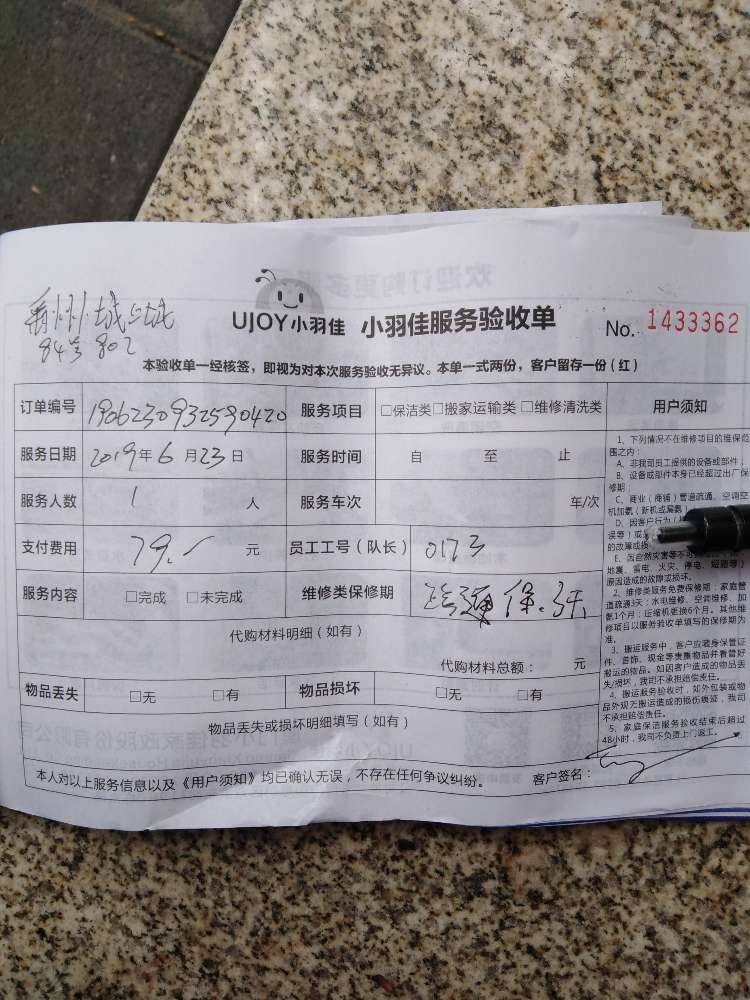 84号 802
UJOY小羽佳 小羽佳服务验收单 No. 1433362
本验收单一经核签，即视为对本次服务验收无异议。本单一式两份，客户留存一份（红）
订单编号 1906230932590420 服务项目 □保洁类□搬家运输类□维修清洗类
服务日期 2019年6月23日 服务时间 自 至 止
服务人数 1 人 服务车次 车/次
支付费用 79.- 元 员工工号（队长） 0173
服务内容 □完成 □未完成 维修类保修期 保.3天
代购材料明细（如有）
代购材料总额： 元
物品丢失 □无 □有 物品损坏 □无 □有
物品丢失或损坏明细填写（如有）
本人对以上服务信息以及《用户须知》均已确认无误，不存在任何争议纠纷。 客户签名：
用户须知
1、下列情况不在维修项目的维保范
围之内：
A、非我司员工提供的设备或部件；
B、设备或部件本身已经超过出厂保
修期；
C、商业（商铺）管道疏通、空调空
机加氨（新机或漏氨
D、因客户行为
误等）或
的故障或损
E、因自然灾害等不
地震、雷电、火灾、停电、短路等）
原因造成的故障或损坏。
2、维修类服务免费保修期：家庭管
道疏通3天；水电维修、空调维修、加
氨1个月；压缩机更换6个月。其他维
修项目以服务验收单填写的保修期为
准。
3、搬运服务中，客户应随身保管证
件、首饰、现金等贵重物品并看管好
搬运的物品。如因客户造成的物品丢
失/损坏，我司不承担赔偿责任。
4、搬运服务验收时，如外包装或物
品外观无搬运造成的损伤痕迹，我司
不承担赔偿责任。
5、家庭保洁服务验收结束后超过
48小时，我司不负责上门返工。